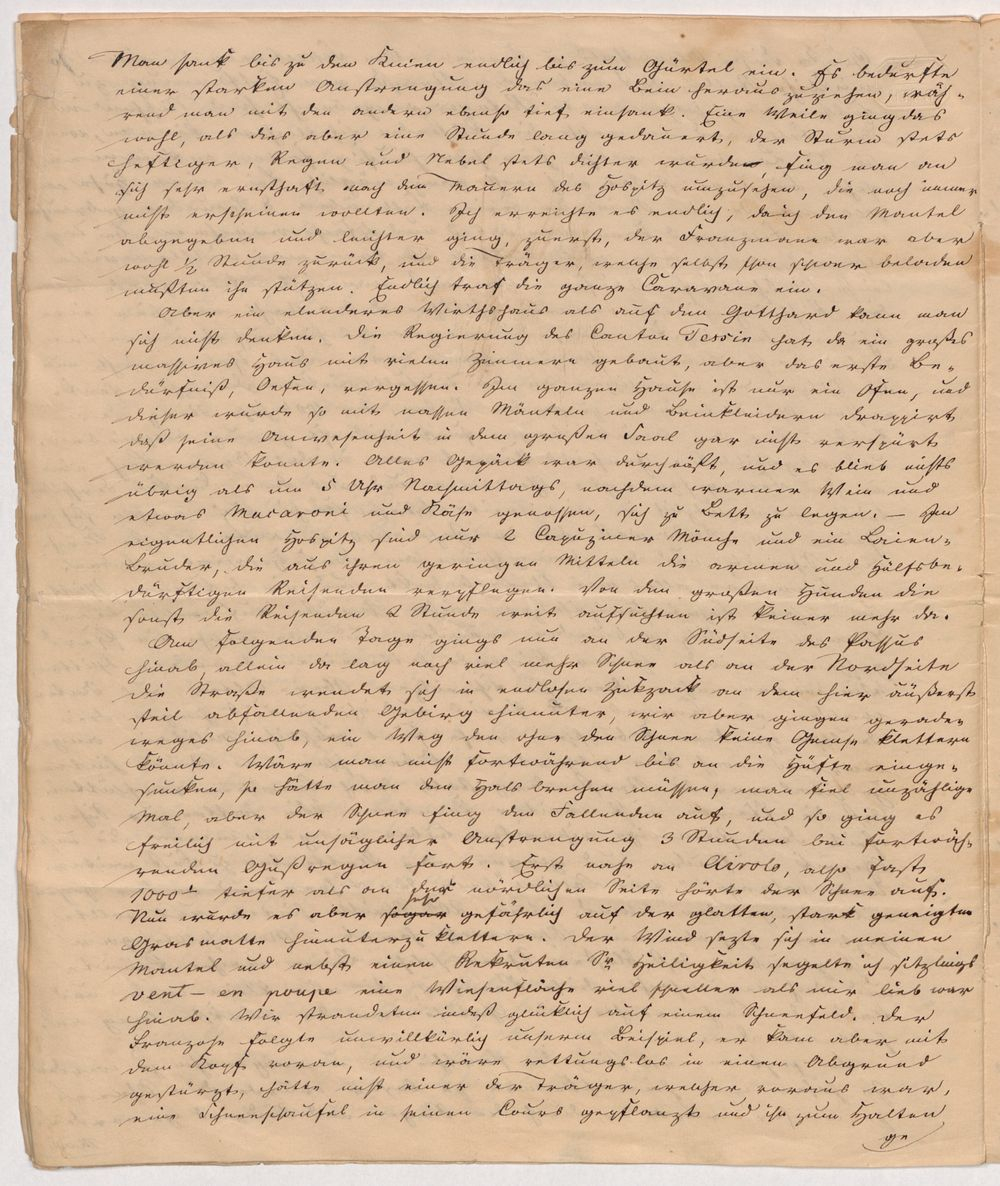 Man sank bis zu den Knien endlich bis zum Gürtel ein. Es bedurfte
einer starken Anstrengung das eine Bein herauszuziehen, wäh-
rend man mit den andern ebenso tief einsank. Eine Weile ging das
wohl, als dies aber eine Stunde lang gedauert, der Sturm stets
heftiger, Regen und Nebel stets dichter wurden, fing man an
sich sehr ernsthaft nach den Mauern des Hospitz umzusehen, die noch immer
nicht erscheinen wollten. Ich erreichte es endlich, da ich den Mantel
abgegeben und leichter ging, zuerst, der Franzmann war aber
wohl ½ Stunde zurück, und die Träger, welche selbst schon schwer beladen
mußten ihn stützen. Endlich traf die ganze Caravane ein.
Aber ein elenderes Wirthshaus als auf den Gotthard kann man
sich nicht denken. Die Regierung des Canton Tessin hat da ein großes
massives Haus mit vielen Zimmern gebaut, aber das erste Be-
dürfniß, Oefen, vergessen. Im ganzen Hause ist nur ein Ofen, und
dieser wurde so mit nassen Mänteln und Beinkleidern drappirt
daß seine Anwesenheit in dem großen Saal gar nicht verspürt
werden konnte. Alles Gepäck war durchnäßt, und es blieb nichts
übrig als um 5 Uhr Nachmittags, nachdem warmer Wein und
etwas Macaroni und Käse genossen, sich zu Bett zu legen. – Im
eigentlichen Hospitz sind nur 2 Capuziner Mönche und ein Laien-
Bruder, die aus ihren geringen Mitteln die armen und Hülfsbe-
dürftigen Reisenden verpflegen. Von den großen Hunden die
sonst die Reisenden 2 Stunde weit aufsuchten ist keiner mehr da.
Am folgenden Tage gings nun an der Südseite des Passus
hinab allein da lag noch viel mehr Schnee als an der Nordseite
Die Straße wendet sich in endlosen Zikzack an dem hier äußerst
steil abfallenden Gebirg hinunter, wir aber gingen gerade-
weges hinab, ein Weg den ohne den Schnee keine Gemse klettern
könnte. Wäre man nicht fortwährend bis an die Hüfte einge-
sunken, so hätte man den Hals brechen müssen, man fiel unzählige
Mal, aber der Schnee fing den Fallenden auf, und so ging es
freilich mit unsäglicher Anstrengung 3 Stunden bei fortwäh-
renden Gußregen fort. Erst nahe an Airolo, also fast
1000' tiefer als an der nördlichen Seite hörte der Schnee auf.
sehr
Nun wurde es aber sogar gefährlich auf der glatten, stark geneigten
Grasmatte hinunterzuklettern. Der Wind sezte sich in meinen
Mantel und nebst einen Rekruten Sr Heiligkeit segelte ich sitzlings
vent – en poupe eine Wiesenfläche viel schneller als mir lieb war
hinab. Wir strandeten indeß glücklich auf einem Schneefeld. Der
Franzose folgte unwillkürlich unserm Beispiel, er kam aber mit
dem Kopf voran, und wäre rettungslos in einen Abgrund
gestürzt, hätte nicht einer der Träger, welcher voraus war,
eine Schneeschaufel in seinen Cours gepflanzt und ihn zum Halten
ge